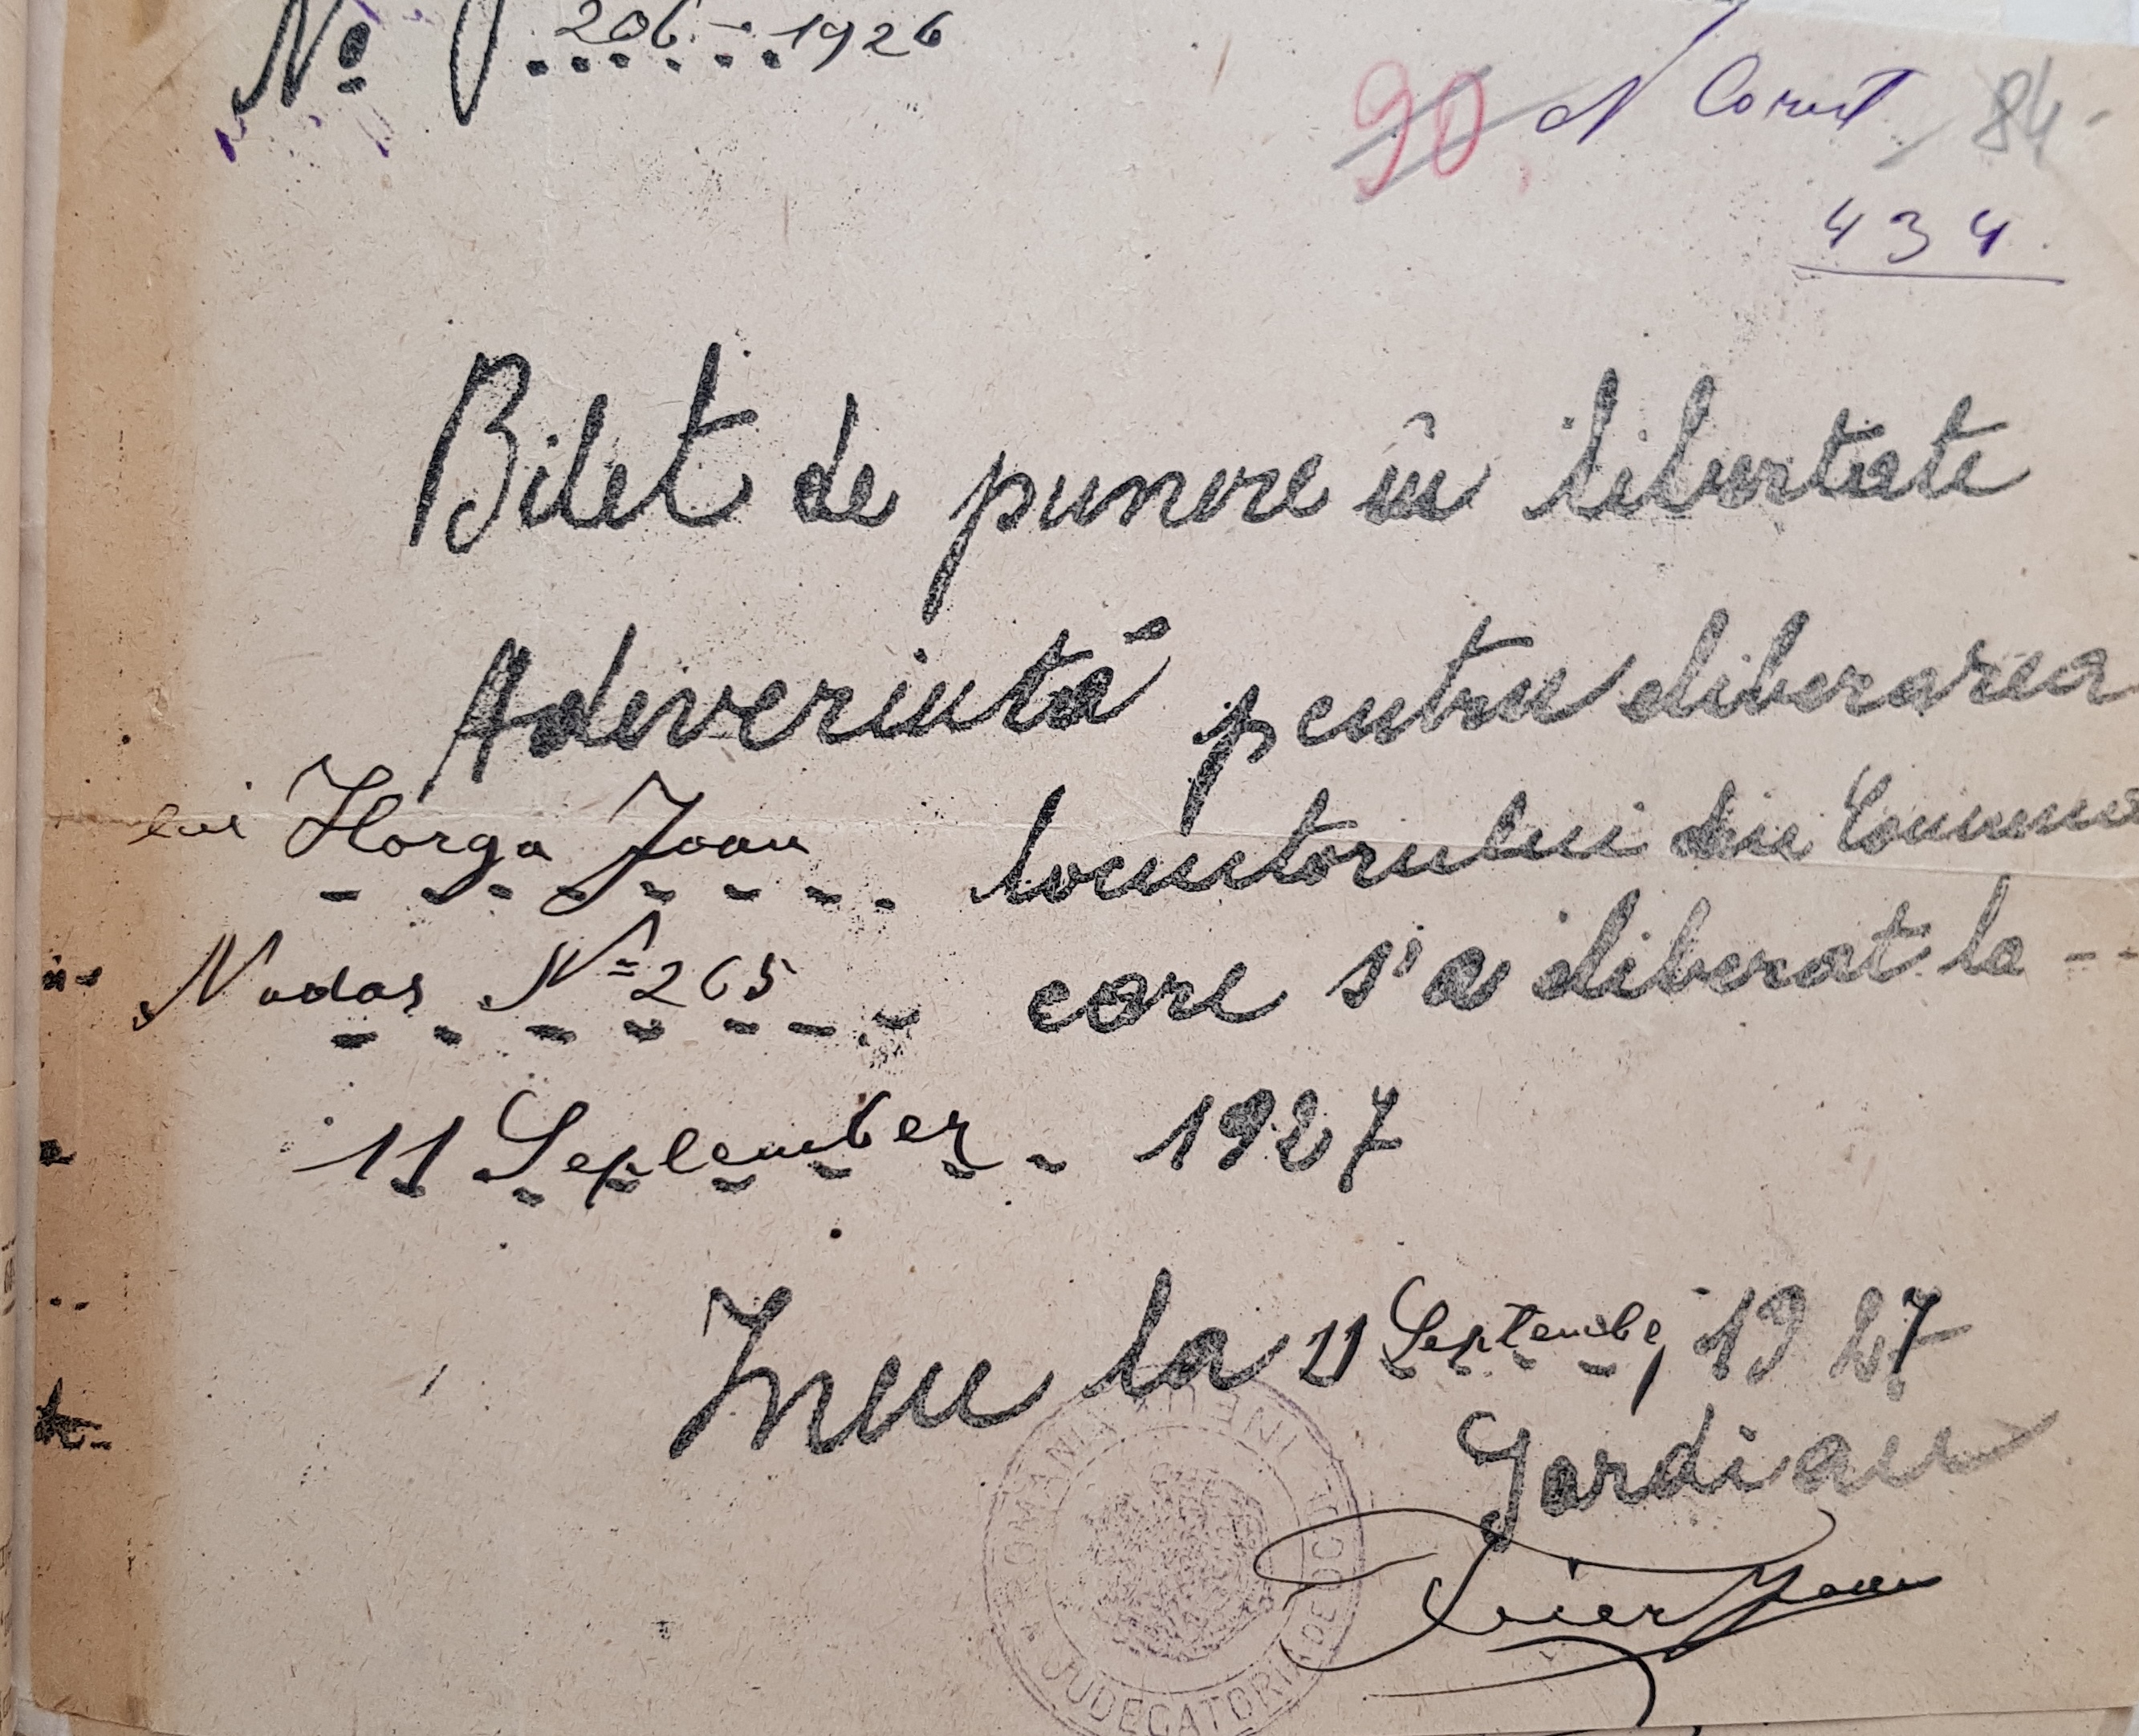 No 206 - 1926
90
84
434
Bilet de punere în libertate
Adeverintă pentru eliberarea
lui Horga Ioan locuitorului din Comuna
Nadas No 265 care s'a eliberat la
11 September 1927
Ineu la 11 Septembe, 1927
Gardian
ROMANIA JUDECATORIA DE OCOL INEU